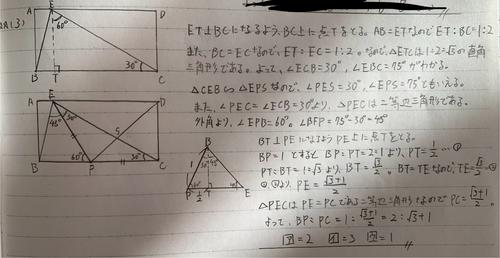 2A(3)
A E D
60°
30°
B T C
A E D
45° 30°
5
60° 30°
B P C
B
1
30° 45°
60° 45°
P 1/2 T E
ET⊥BCになるよう、BC上に点Tをとる。AB=ETなので ET:BC=1:2
また、BC=ECなので、ET:EC=1:2。なので、△ETCは1:2:√3の直角
三角形である。よって、∠ECB=30°,∠EBC=75°がわかる。
△CEB∽△EPSなので、∠PES=30°,∠EPS=75°ともいえる。
また、∠PEC=∠ECB=30°より、△PECは二等辺三角形である。
外角より、∠EPB=60°。∠BFP=75°-30°=45°
BT⊥PEになるようPEに点Tをとる。
BP=1とすると BP:PT=2:1より、PT=1/2…①
PT:BT=1:√3より、BT=√3/2。BT=TEなので、TE=√3/2…②
①,②より、PE=(√3+1)/2
△PECはPE=PCである二等辺三角形なので PC=(√3+1)/2。
よって、BP:PC=1:(√3+1)/2=2:√3+1
ア=2 イ=3 ウ=1